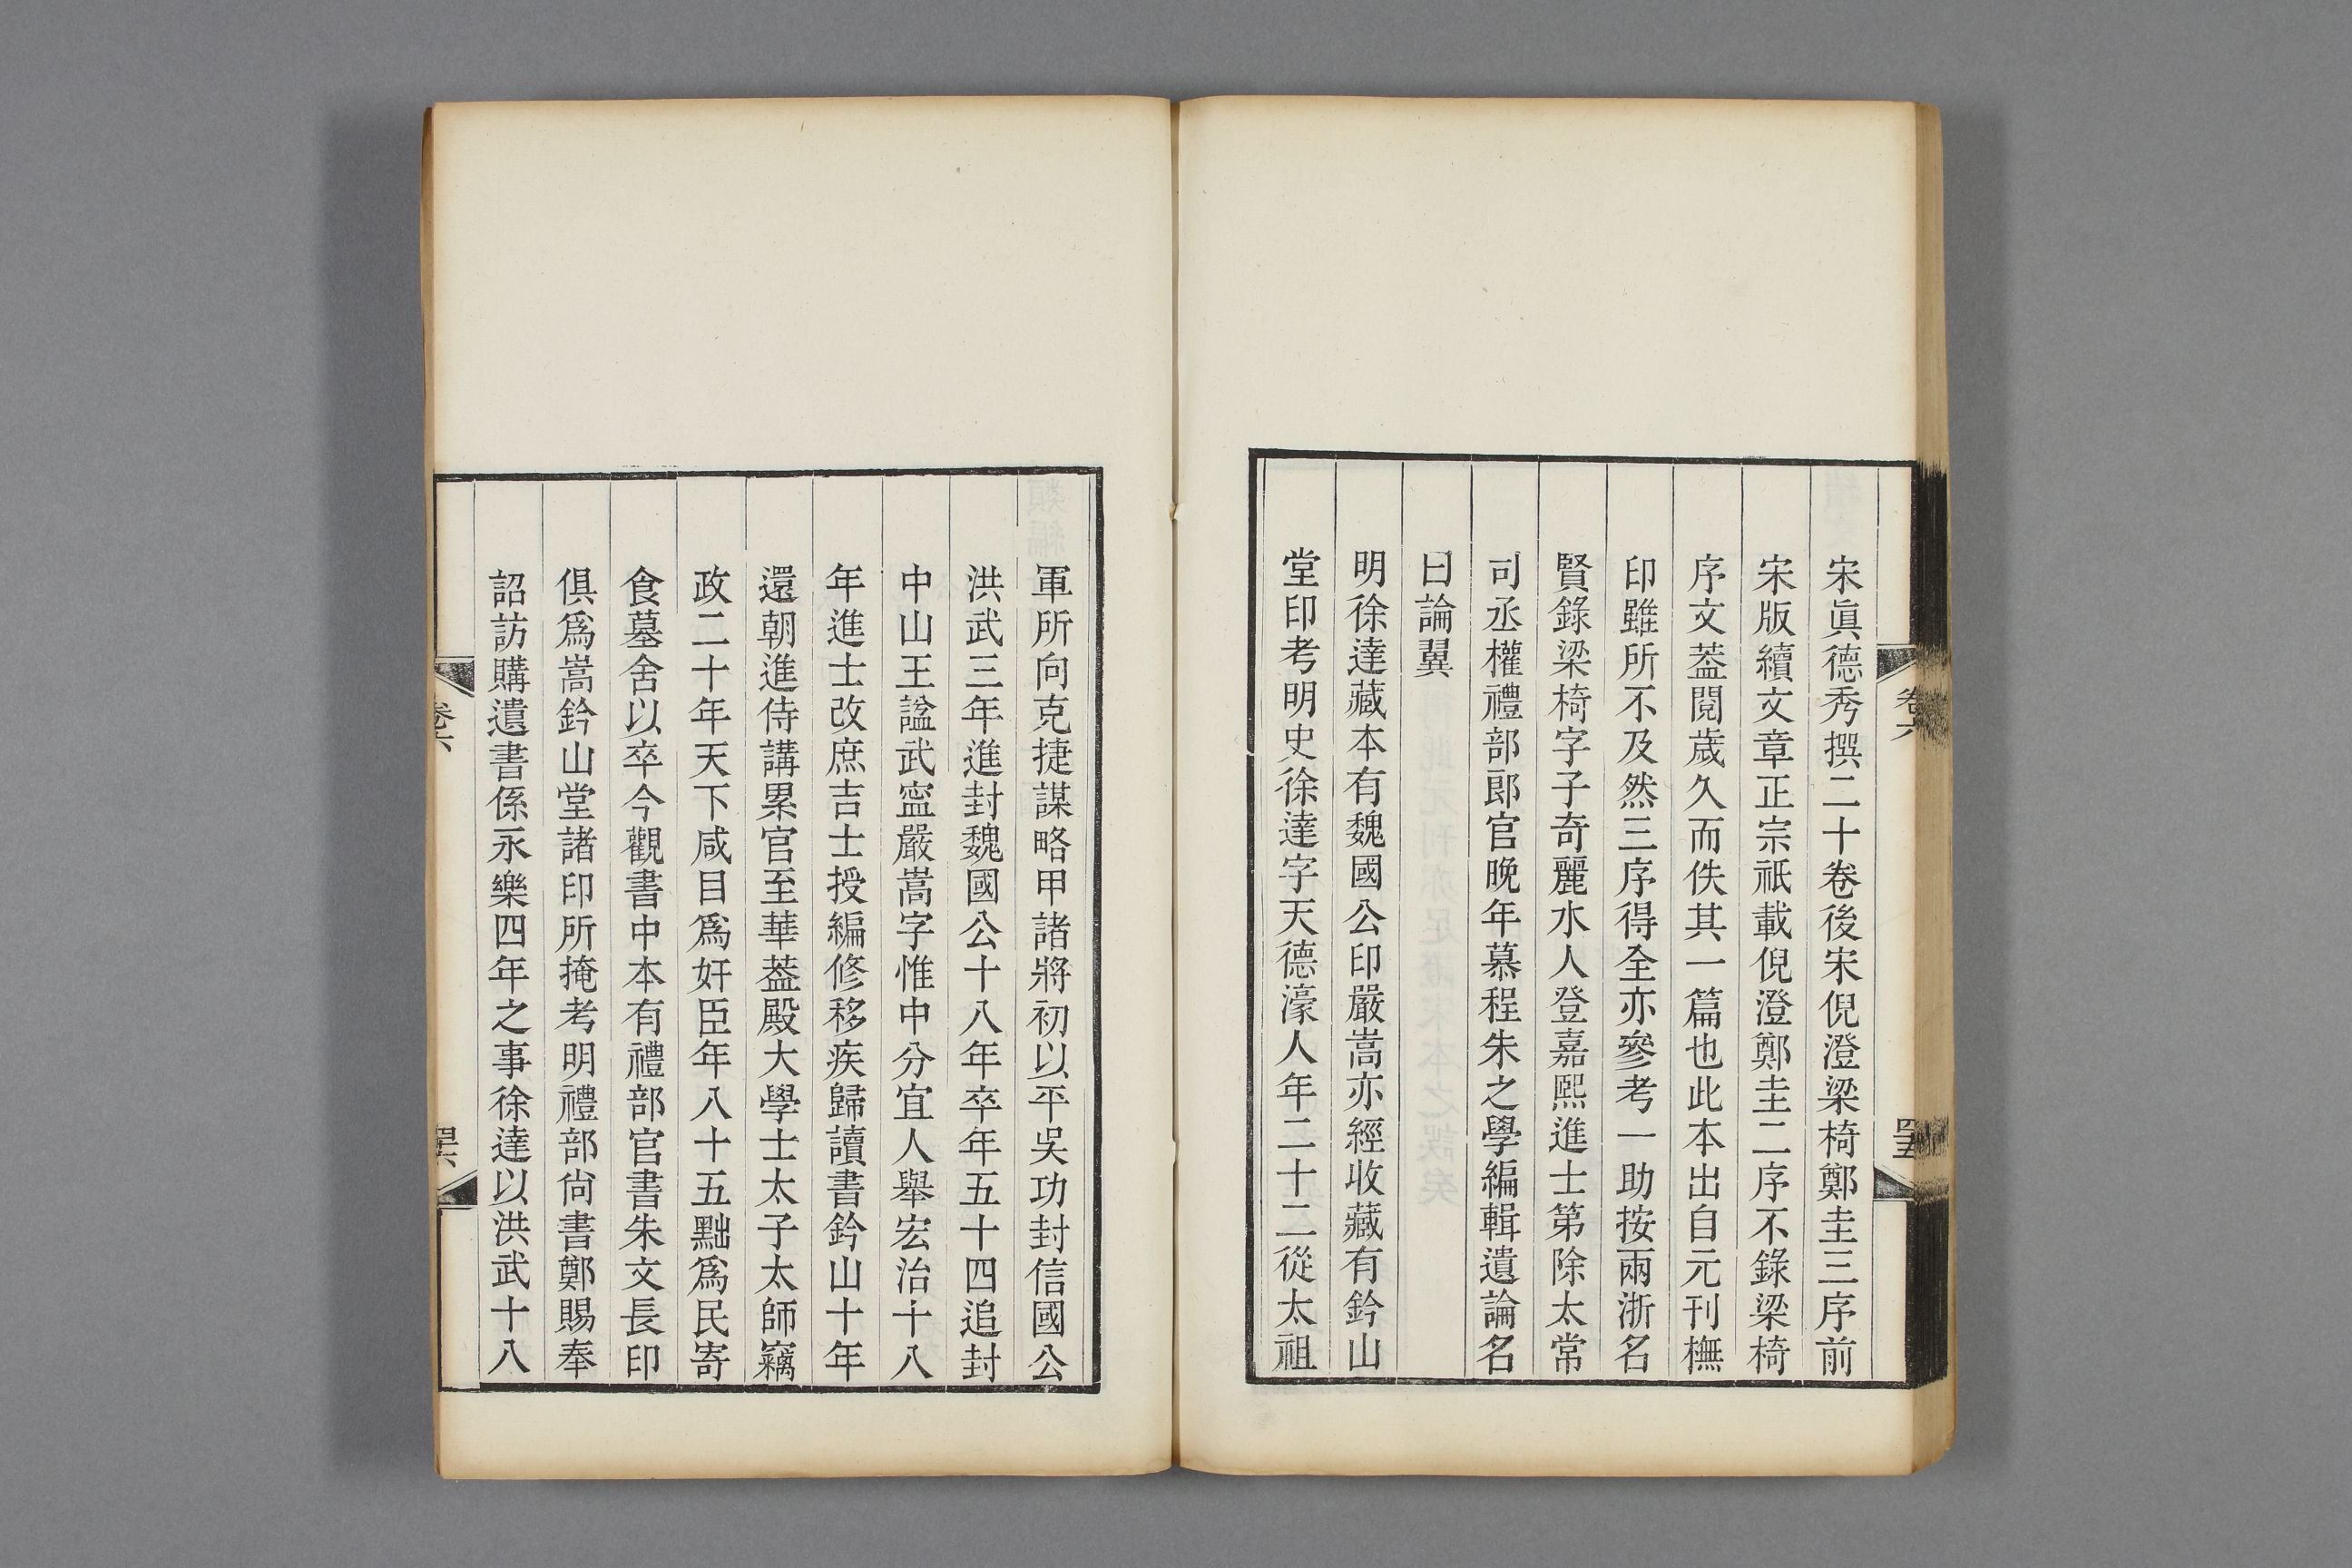 宋眞德秀撰二十卷後宋倪澄梁椅鄭圭三序前
宋版續文章正宗祇載倪澄鄭圭二序不錄梁椅
序文葢閱歲久而佚其一篇也此本出自元刊橅
印雖所不及然三序得全亦參考一助按兩浙名
賢錄梁椅字子奇麗水人登嘉熙進士第除太常
司丞權禮部郎官晚年慕程朱之學編輯遺論名
曰論翼
明徐達藏本有魏國公印嚴嵩亦經收藏有鈐山
堂印考明史徐達字天德濠人年二十二從太祖
軍所向克捷謀略甲諸將初以平吳功封信國公
洪武三年進封魏國公十八年卒年五十四追封
中山王諡武寍嚴嵩字惟中分宜人舉宏治十八
年進士改庶吉士授編修移疾歸讀書鈐山十年
還朝進侍講累官至華葢殿大學士太子太師竊
政二十年天下咸目爲奸臣年八十五黜爲民寄
食墓舍以卒今觀書中本有禮部官書朱文長印
俱爲嵩鈐山堂諸印所掩考明禮部尙書鄭賜奉
詔訪購遺書係永樂四年之事徐達以洪武十八
卷六
卷六